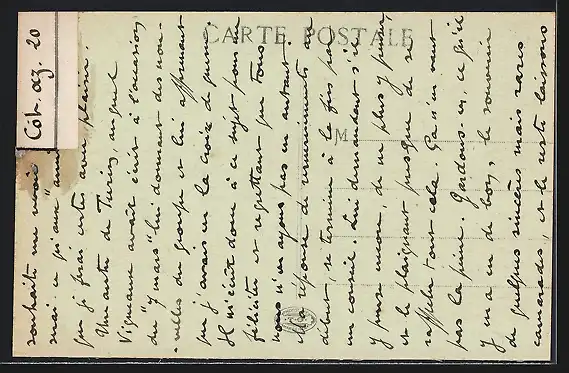 CARTE POSTALE
M
Côt. az. 20
souhaite me voir
mai ce qu'au
que je ferai certes avec plaisir.
Une autre de Turin, auquel
Vigneane avait écrit à l'occasion
du "7 mars" lui donnant des nou-
-velles du groupe et lui apprenant
que j'avais eu la croix de guerre.
Il m'écrit donc à ce sujet pour me
féliciter et regrettant que tous
nous n'en ayons pas eu autant.
Ma réponse de remerciements au
début, se termine à la fin par
un conseil. Lui demandant s'il
y pense encore, de ne plus y penser
et le plaignant presque de se
rappeler tout cela. Ça n'en vaut
pas la peine. Gardons en, ce qu'il
y a eu de bon, le souvenir
de quelques sincères mais rares
camarades, et le reste laissons